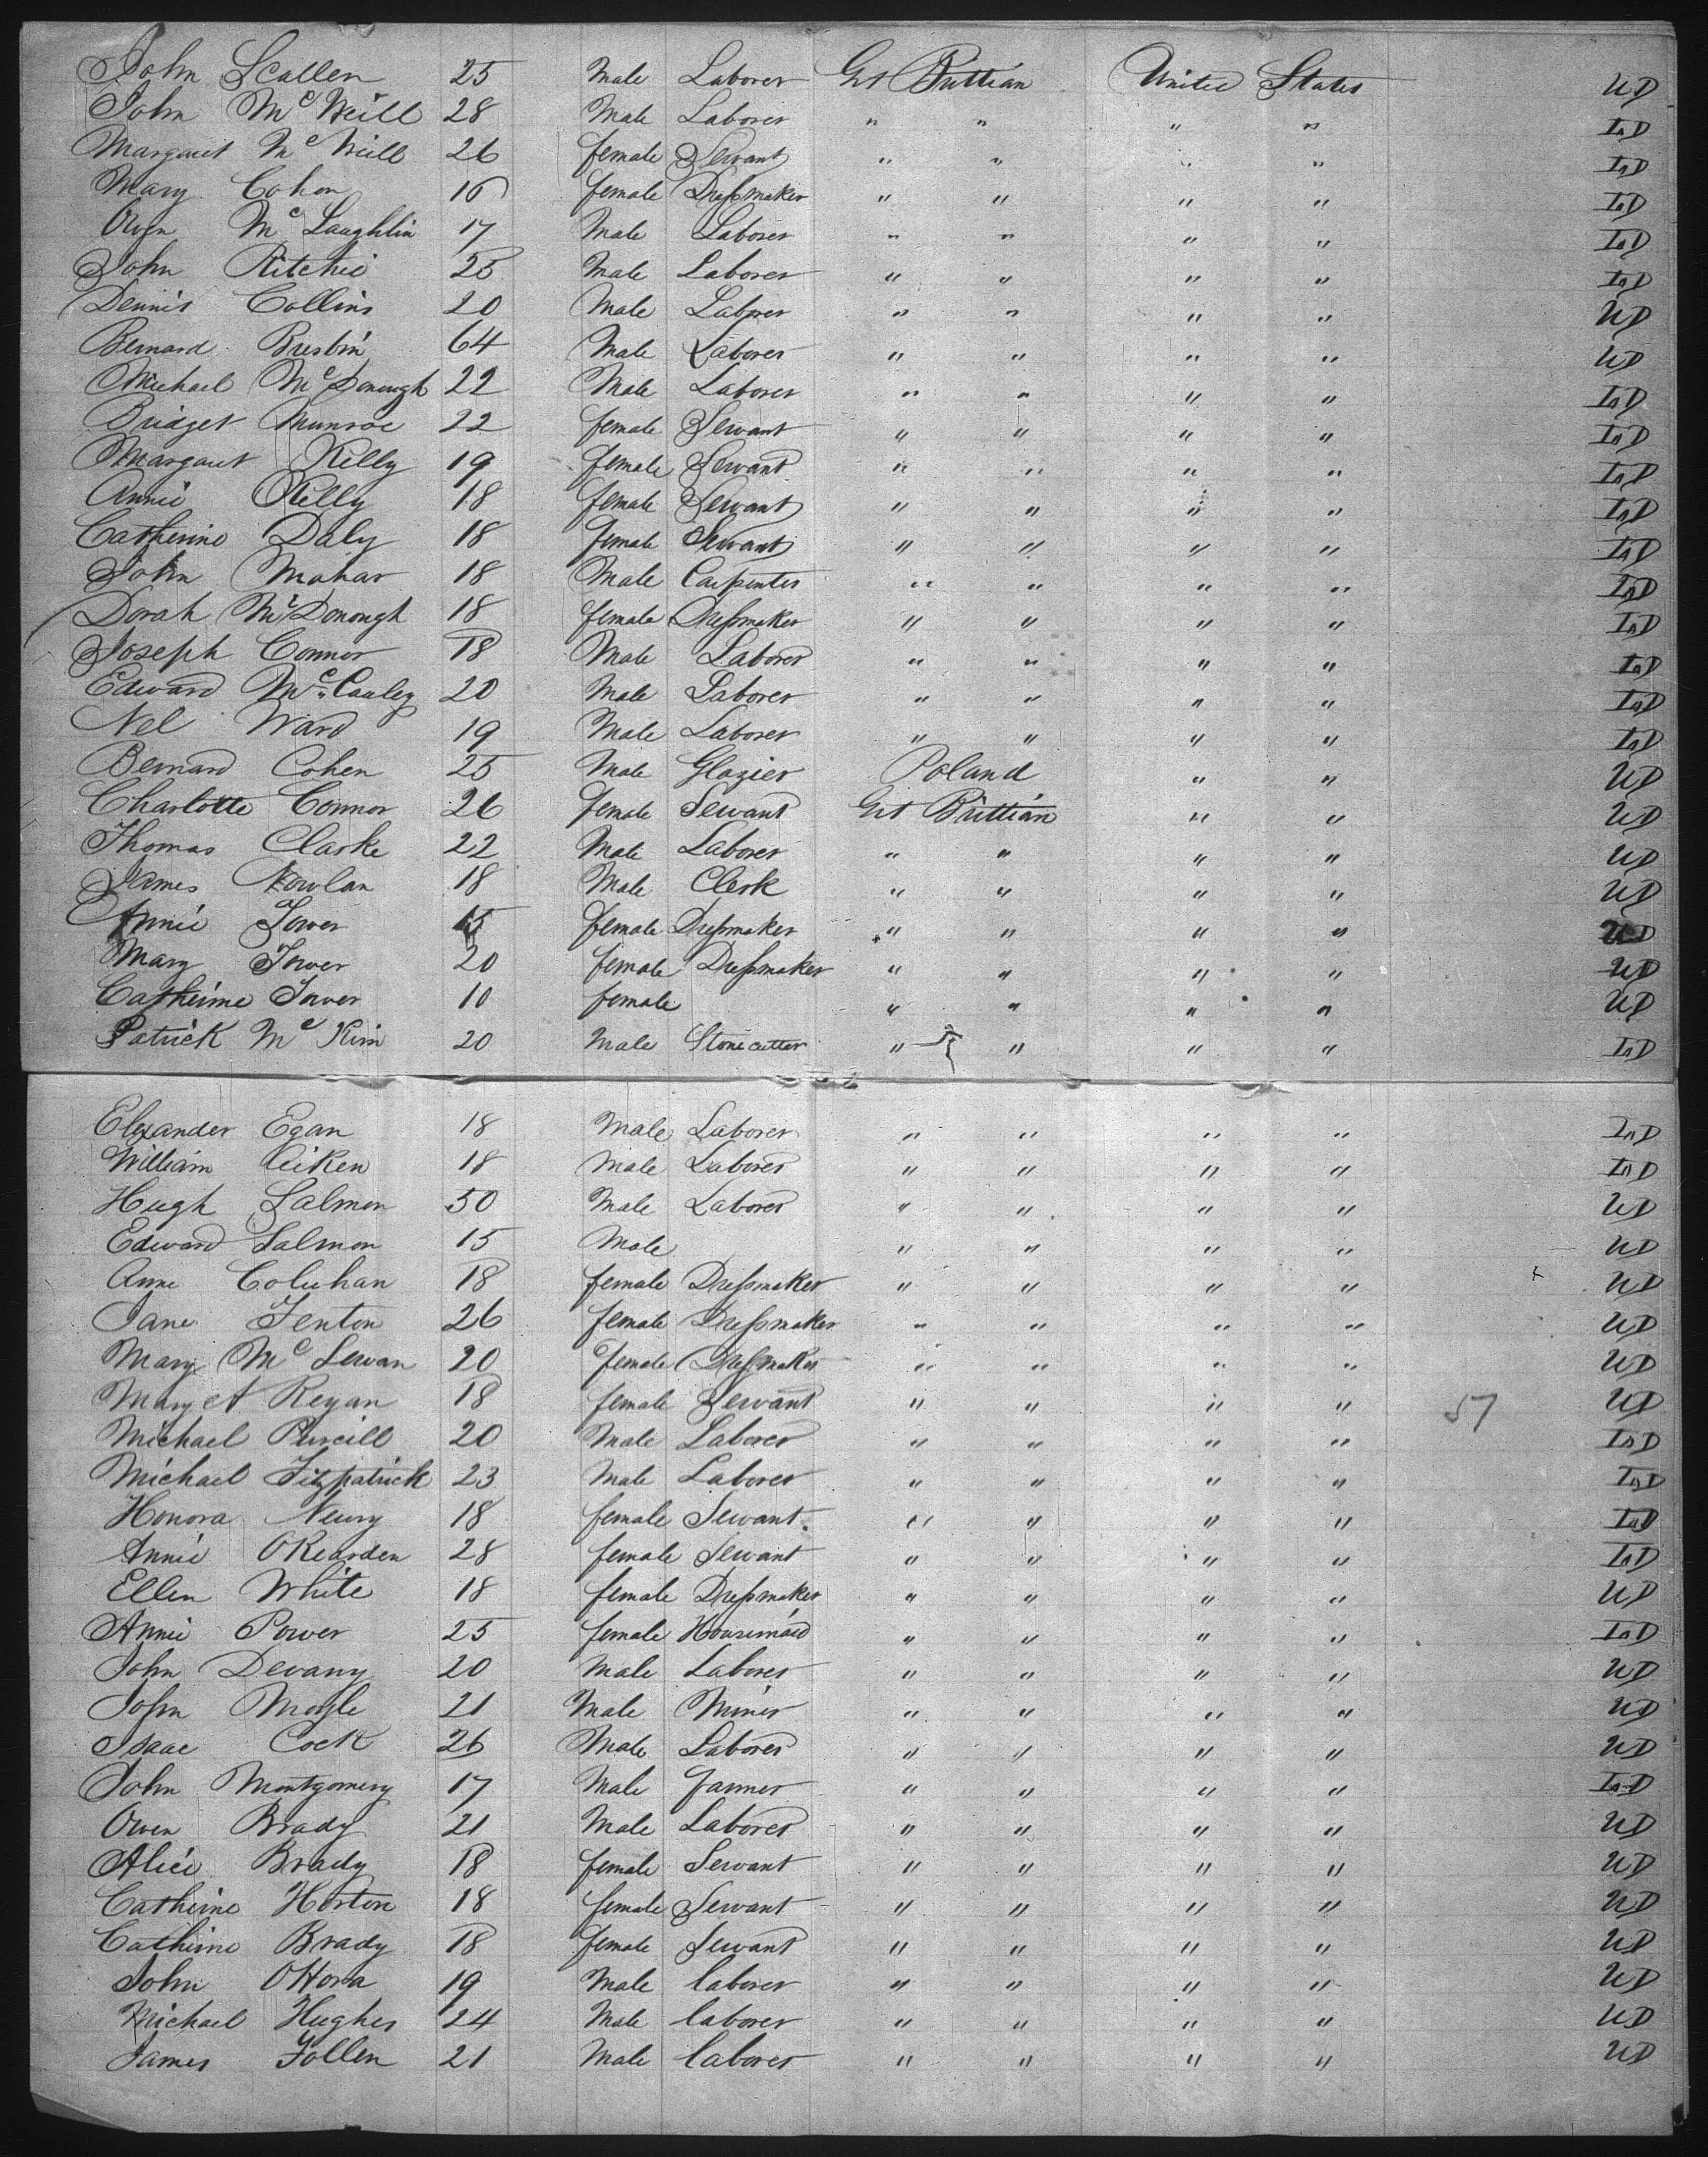 John Scallen 25 Male Laborer Grt Brittian United States UD
John McNeill 28 Male Laborer " " " " LnD
Margaret McNeill 26 female Servant " " " " LnD
Mary Cohen 16 female Dressmaker " " " " LnD
Owen McLaughlin 17 Male Laborer " " " " LnD
John Ritchie 25 Male Laborer " " " " LnD
Dennis Collins 20 Male Laborer " " " " UD
Bernard Breslin 64 Male Laborer " " " " UD
Michael McDonough 22 Male Laborer " " " " LnD
Bridget Munroe 22 female Servant " " " " LnD
Margaret Kelly 19 female Servant " " " " LnD
Annie Kelly 18 female Servant " " " " LnD
Catherine Daly 18 female Servant " " " " LnD
John Mahar 18 Male Carpenter " " " " LnD
Dorah McDonough 18 female Dressmaker " " " " LnD
Joseph Connor 18 Male Laborer " " " " LnD
Edward McCauley 20 Male Laborer " " " " LnD
Nel Ward 19 Male Laborer " " " " LnD
Bernard Cohen 25 Male Glazier Poland " " UD
Charlotte Connor 26 female Servant Grt Brittian " " UD
Thomas Clarke 22 Male Laborer " " " " UD
James Nowlan 18 Male Clerk " " " " UD
Annie Tower 15 female Dressmaker " " " " UD
Mary Tower 20 female Dressmaker " " " " UD
Catherine Tower 10 female " " " " UD
Patrick McKim 20 Male Stonecutter " " " " LnD
Elexander Egan 18 Male Laborer " " " " LnD
William Aiken 18 Male Laborer " " " " LnD
Hugh Salmon 50 Male Laborer " " " " UD
Edward Salmon 15 Male " " " " UD
Anne Coluhan 18 female Dressmaker " " " " UD
Jane Fenton 26 female Dressmaker " " " " UD
Mary McSewan 20 female Dressmaker " " " " UD
Mary A Regan 18 female Servant " " " " 57 UD
Michael Purcill 20 Male Laborer " " " " LnD
Michael Fitzpatrick 23 Male Laborer " " " " LnD
Honora Neury 18 female Servant " " " " LnD
Annie ORearden 28 female Servant " " " " LnD
Ellen White 18 female Dressmaker " " " " UD
Annie Power 25 female Housemaid " " " " LnD
John Devany 20 Male Laborer " " " " UD
John Mogle 21 Male Miner " " " " UD
Isaac Cock 26 Male Laborer " " " " UD
John Montgomery 17 Male farmer " " " " LnD
Owen Brady 21 Male Laborer " " " " UD
Alice Brady 18 female Servant " " " " UD
Catherine Horton 18 female Servant " " " " UD
Catherine Brady 18 female Servant " " " " UD
John OHora 19 Male laborer " " " " UD
Michael Hughes 24 Male laborer " " " " UD
James Follen 21 Male laborer " " " " UD